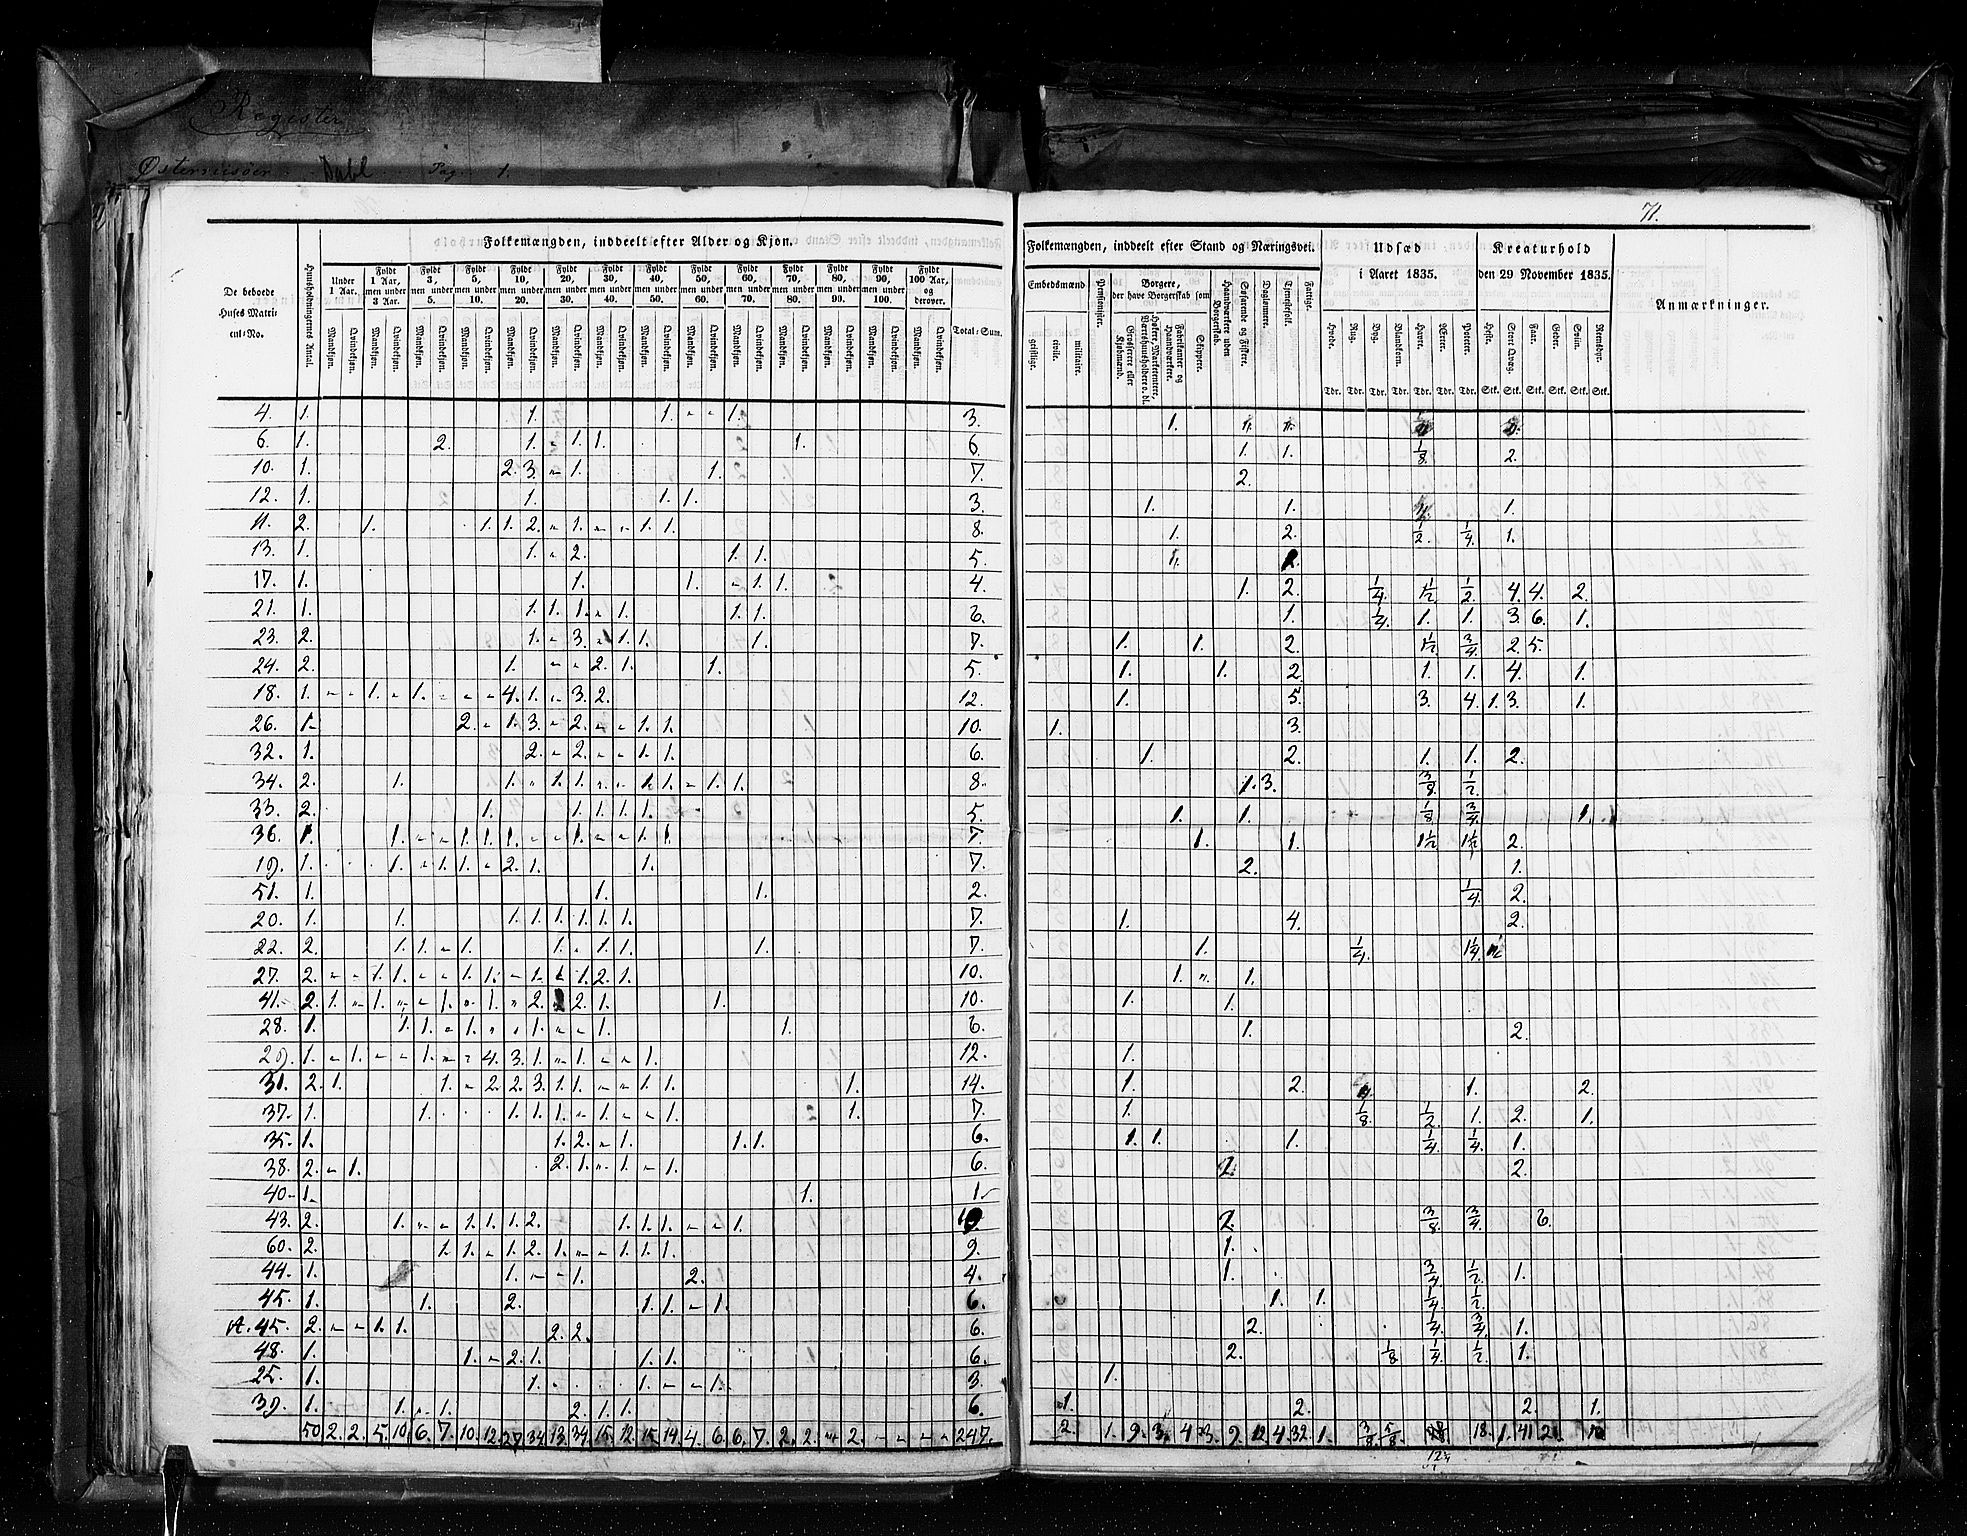 Register
Østerriisøer Dahl Pag. 1.
71.
Folkemængden, inddeelt efter Alder og Kjøn.
Folkemængden, inddeelt efter Stand og Næringsvei.
Udsæd i Aaret 1835.
Kreaturhold den 29 November 1835.
Anmærkninger.
De beboede Huses Matricul-No.
Huusholdningernes Antal.
Under 1 Aar.
Fyldt 1 Aar, men under 3 Aar.
Fyldt 3, men under 5.
Fyldt 5, men under 10.
Fyldt 10, men under 20.
Fyldt 20, men under 30.
Fyldt 30, men under 40.
Fyldt 40, men under 50.
Fyldt 50, men under 60.
Fyldt 60, men under 70.
Fyldt 70, men under 80.
Fyldt 80, men under 90.
Fyldt 90, men under 100.
Fyldt 100 Aar, og derover.
Mandkjøn. Qvindekjøn.
Total-Sum.
Embedsmænd
geistlige. civile. militaire.
Pensionister.
Borgere, der have Borgerskab som
Grosserere eller Kjøbmænd.
Høkere, Marketentere, Værtshuusholdere o. dl.
Fabrikanter og Haandværkere.
Skippere.
Haandværkere uden Borgerskab.
Søfarende og Fiskere.
Daglønnere.
Tjenestefolk.
Fattige.
Hvede. Rug. Byg. Blandkorn. Havre. Ærter. Poteter.
Heste. Stort Qvæg. Faar. Geder. Sviin. Rensdyr.
Tdr. Tdr. Tdr. Tdr. Tdr. Tdr. Tdr. Stk. Stk. Stk. Stk. Stk. Stk.
4. 1. 1. 1. 1. 3. 1.
6. 1. 2. 1. 1. 1. 1. 6. 1. 1. 1/8 2.
10. 1. 2. 3. 1. 1. 7. 2.
12. 1. 1. 1. 1. 3. 1. 1. 1.
11. 2. 1. 1. 1. 2. 1. 1. 1. 8. 1. 2. 1/2 1/4 1.
13. 1. 1. 2. 1. 1. 5.
17. 1. 1. 1. 1. 1. 4. 1. 2. 1/4 1 1/2 1/2 4. 4. 2.
21. 1. 1. 1. 1. 1. 1. 1. 6. 1. 1/4 1. 1. 3. 6. 1.
23. 2. 1. 3. 1. 1. 1. 7. 1. 1. 2. 1 1/2 3/4 2. 5.
24. 2. 1. 2. 1. 1. 5. 1. 1. 2. 1. 1. 4. 1.
18. 1. 1. 1. 4. 1. 3. 2. 12. 1. 5. 3. 4. 1. 3. 1.
26. 1. 2. 1. 3. 2. 1. 1. 10. 1. 3.
32. 1. 2. 2. 1. 1. 6. 1. 2. 1. 1. 2.
34. 2. 1. 1. 1. 1. 1. 1. 1. 1. 8. 1. 3. 3/8 1/2
33. 2. 1. 1. 1. 1. 1. 5. 1. 1. 1/8 3/4 1.
36. 1. 1. 1. 1. 1. 1. 1. 1. 7. 1. 1. 1 1/2 1 1/2 2.
19. 1. 1. 1. 1. 2. 1. 1. 7. 2. 1.
51. 1. 1. 1. 2. 1/4 2.
20. 1. 1. 1. 1. 1. 1. 1. 1. 7. 1. 4. 2.
22. 2. 1. 1. 1. 1. 1. 1. 1. 7. 1. 1/4 1 1/4
27. 2. 1. 1. 1. 1. 1. 1. 1. 2. 1. 10. 1. 1.
41. 2. 1. 1. 1. 1. 2. 2. 1. 1. 10. 1. 1.
28. 1. 1. 1. 1. 1. 1. 1. 6. 1. 2.
29. 1. 1. 1. 4. 3. 1. 1. 1. 12. 1.
31. 2. 1. 1. 2. 2. 3. 1. 1. 1. 1. 1. 14. 1. 2. 1. 2.
37. 1. 1. 1. 1. 1. 1. 1. 1. 7. 1. 1/8 1/2 1. 2. 1.
35. 1. 1. 2. 1. 1. 1. 6. 1. 1. 1. 1/4 1/4 1.
38. 2. 1. 2. 1. 1. 1. 6. 2. 2.
40. 1. 1. 1
43. 2. 1. 1. 1. 1. 2. 1. 1. 1. 1. 10. 2. 3/8 3/4 6.
60. 2. 1. 1. 1. 2. 1. 1. 1. 1. 9. 1.
44. 1. 1. 1. 2. 4. 1. 3/4 1/2 1.
45. 1. 1. 2. 1. 1. 1. 6. 1. 1. 1/4 1/2
A. 45. 2. 1. 1. 2. 2. 6. 2. 1/4 3/4 1.
48. 1. 1. 2. 1. 1. 1. 6. 2. 1/8 1/4 1/2 1.
25. 1. 1. 1. 1. 3. 1.
39. 1. 1. 1. 2. 1. 1. 6. 1. 2. 2. 1.
50 2. 2. 5. 10. 6. 7. 10. 12. 27. 34. 13. 34. 15. 12. 15. 14. 4. 6. 6. 7. 2. 2. 2. 247. 2. 1. 9. 3. 4. 3. 9. 12. 4. 32. 1. 3/8 5/8 18. 1. 41 21. 10